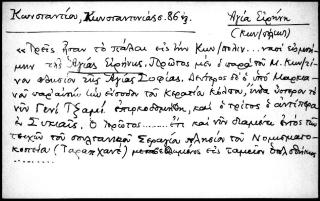 Κωνσταντίου, Κωνσταντινιάς σ. 86 ἑξ.
Ἁγία Εἰρήνη
(Κων/πόλεως)
«Τρεῖς ἦσαν τὸ πάλαι εἰς τὴν Κων/πολιν... ναοὶ τιμώμε-
νοι τῆς Ἁγίας Εἰρήνης. Πρῶτος μὲν ὁ παρὰ τοῦ Μ. Κων/τί-
νου πλησίον τῆς Ἁγίας Σοφίας. Δεύτερος δὲ ὁ ὑπὸ Μαρκια-
νοῦ παρὰ τὴν εἴσοδον τοῦ Κερατίου κόλπου, ἔνθα ὕστερον τὸ
νῦν Γενὶ Τζαμὶ ἐπῳκοδομήθη, καὶ ὁ τρίτος ὁ ἀντίπερα
ἐν Συκαῖς. Ὁ πρῶτος........ ἔτι καὶ νῦν διαμένει ἐντὸς τῶν
τειχῶν τοῦ σουλτανικοῦ Σεραγίου πλησίον τοῦ Νομισματο-
κοπείου (Ταραπχανὲ) μεταβεβλημένος εἰς ταμεῖον ὁπλοθήκης
..........